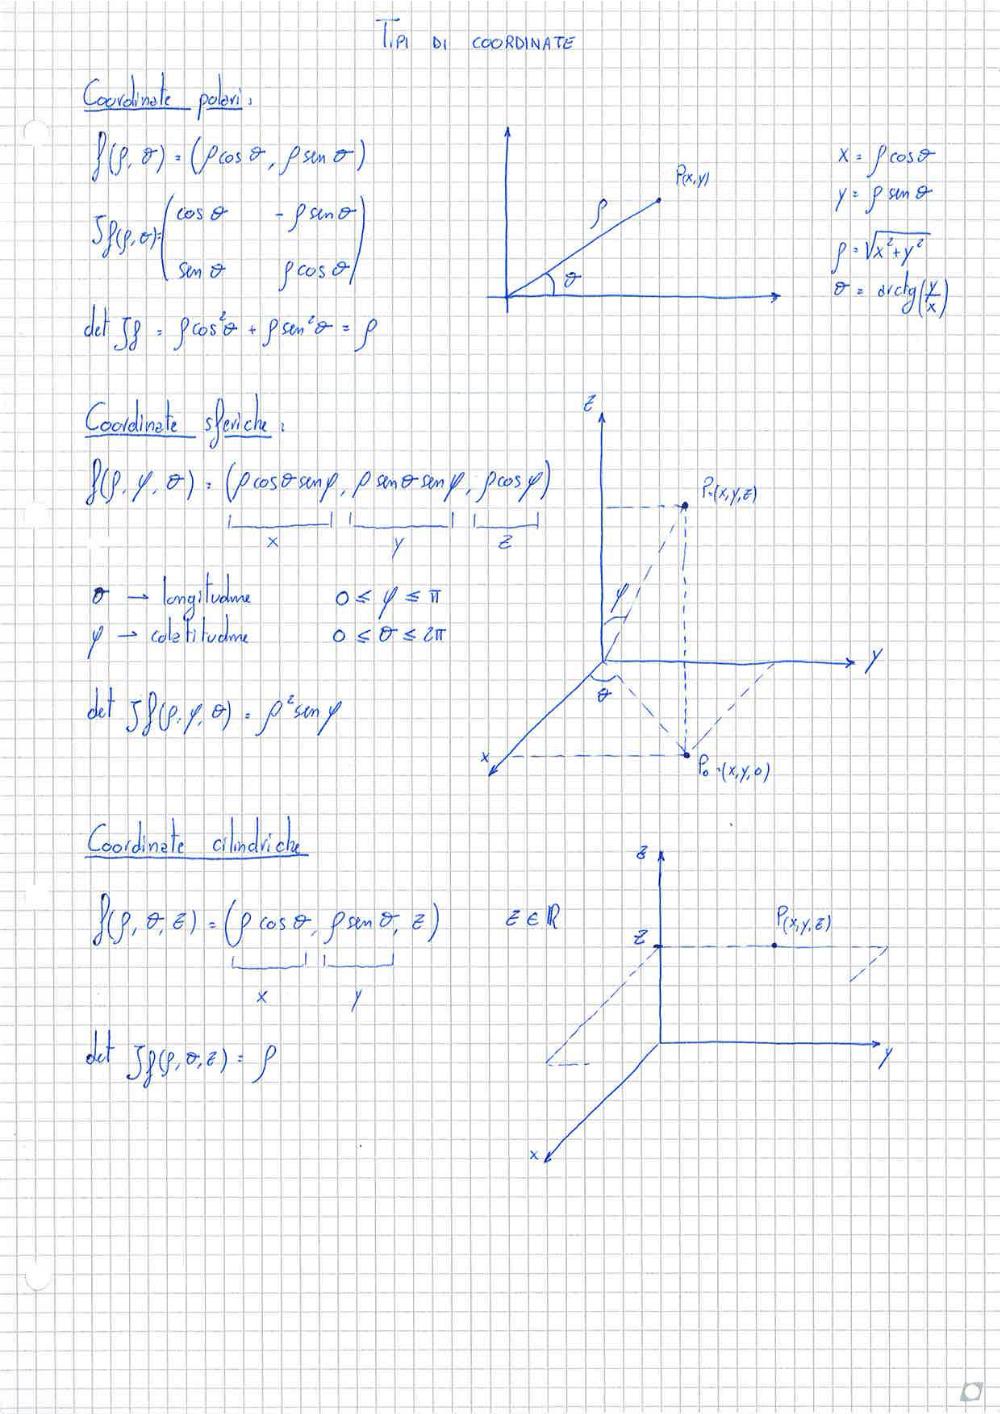 TIPI DI COORDINATE
Coordinate polari:
f(ρ, θ) = (ρcosθ, ρsenθ)
Jf(ρ,θ)= (cosθ -ρsenθ
senθ ρcosθ)
det Jf = ρcos²θ + ρsen²θ = ρ
P(x,y)
ρ
θ
x = ρcosθ
y = ρsenθ
ρ = √x²+y²
θ = arctg(y/x)
Coordinate sferiche:
f(ρ, φ, θ) = (ρcosθsenφ, ρsenθsenφ, ρcosφ)
x y z
θ → longitudine 0 ≤ φ ≤ π
φ → colatitudine 0 ≤ θ ≤ 2π
det Jf(ρ,φ,θ) = ρ²senφ
z
P=(x,y,z)
φ
y
θ
x
P₀=(x,y,0)
Coordinate cilindriche
f(ρ, θ, z) = (ρcosθ, ρsenθ, z) z ∈ ℝ
x y
det Jf(ρ,θ,z) = ρ
z
P(x,y,z)
z
y
x